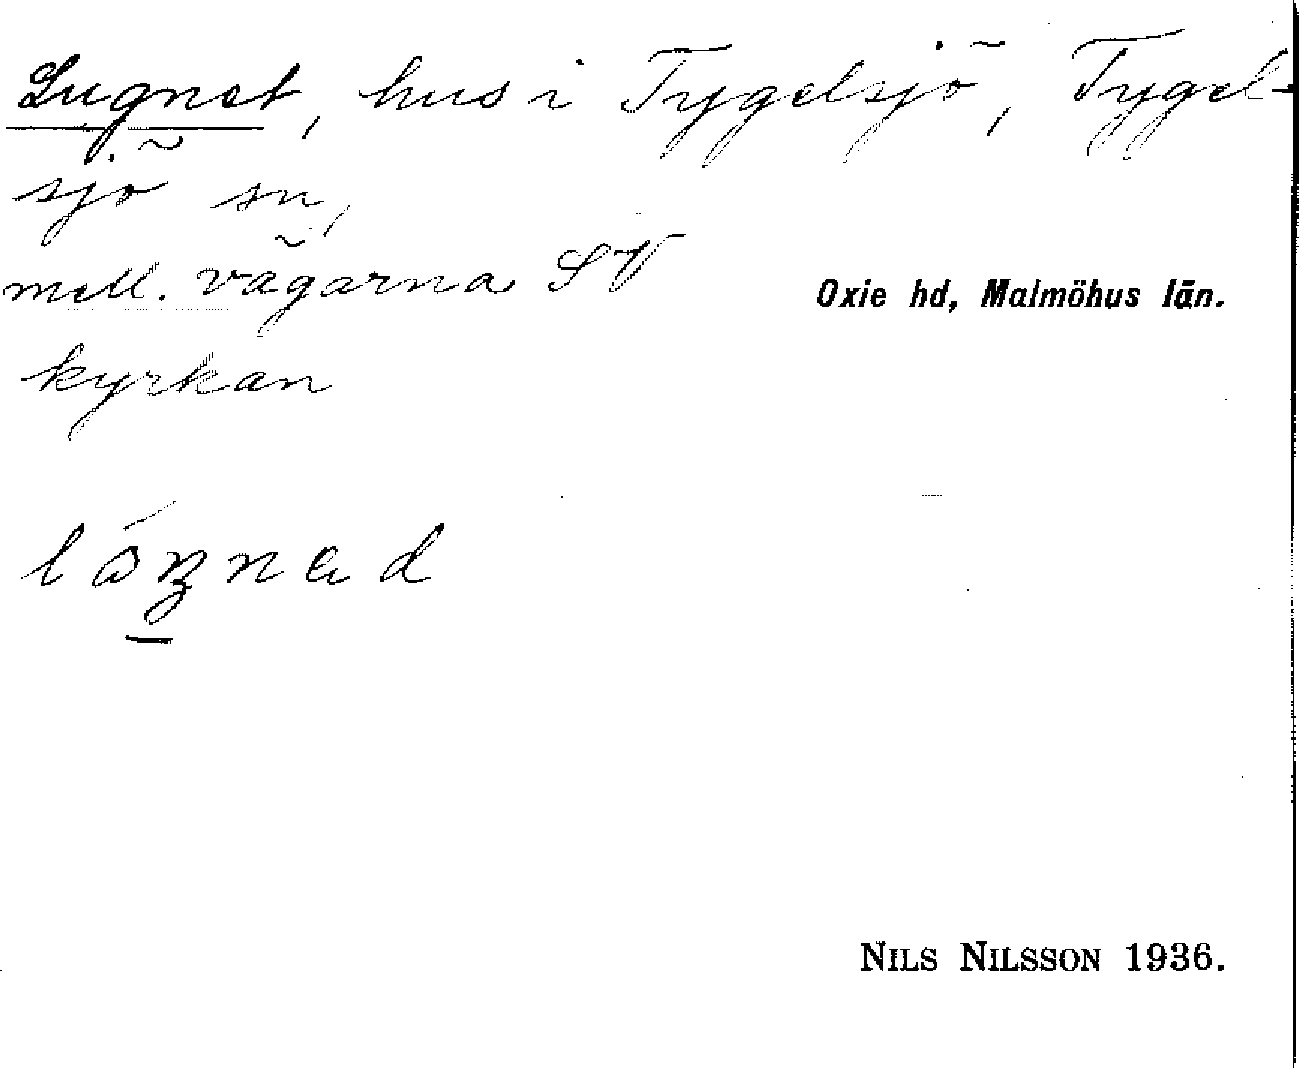 Lugnet, hus i Tygelsjö, Tygel-
sjö sn,
mell. vägarna SV
Oxie hd, Malmöhus län.
kyrkan
NILS NILSSON 1936.